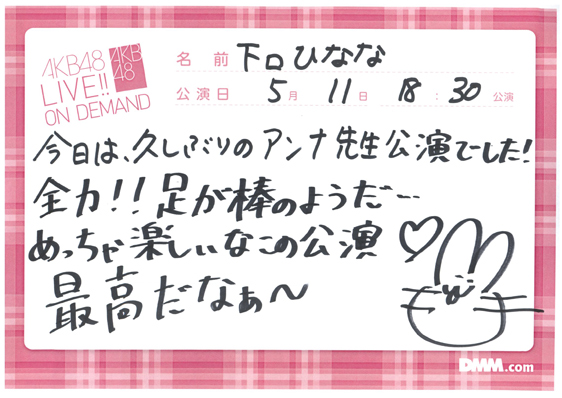 AKB48
LIVE!!
ON DEMAND
AKB
48
名 前 下口ひなな
公演日 5月 11日 18:30 公演
今日は、久しぶりのアンナ先生公演でした!
全力!!足が棒のようだ…
めっちゃ楽しいなこの公演
最高だなぁ〜
DMM.com